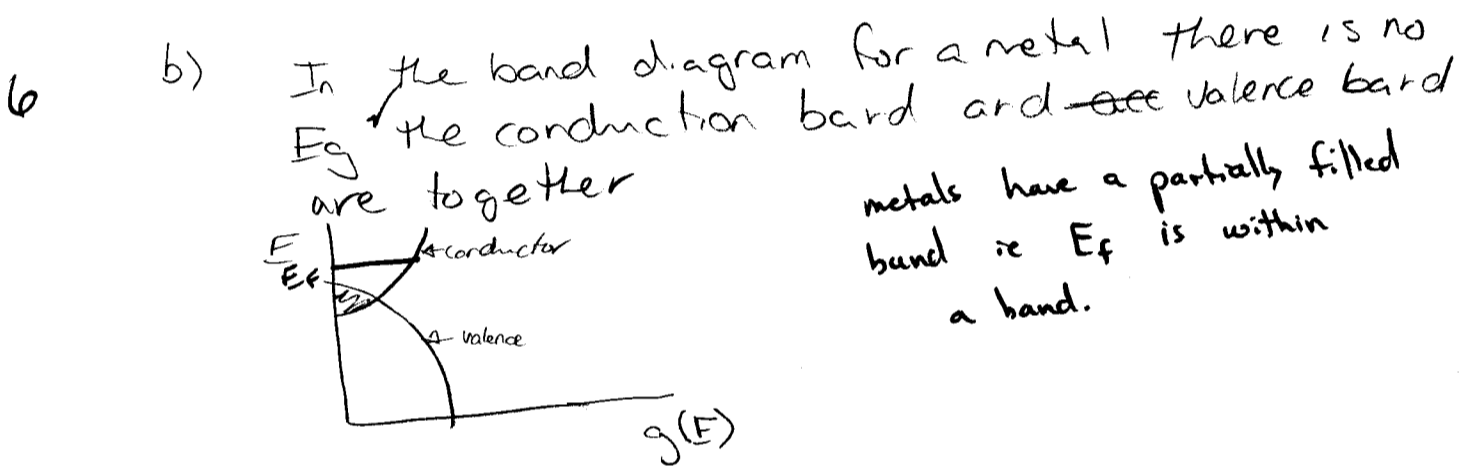 6
b) In the band diagram for a metal there is no
Eg the conduction band and valence band
are together
metals have a partially filled
band ie Ef is within
a band.
E
Ef
conductor
valence
g(E)